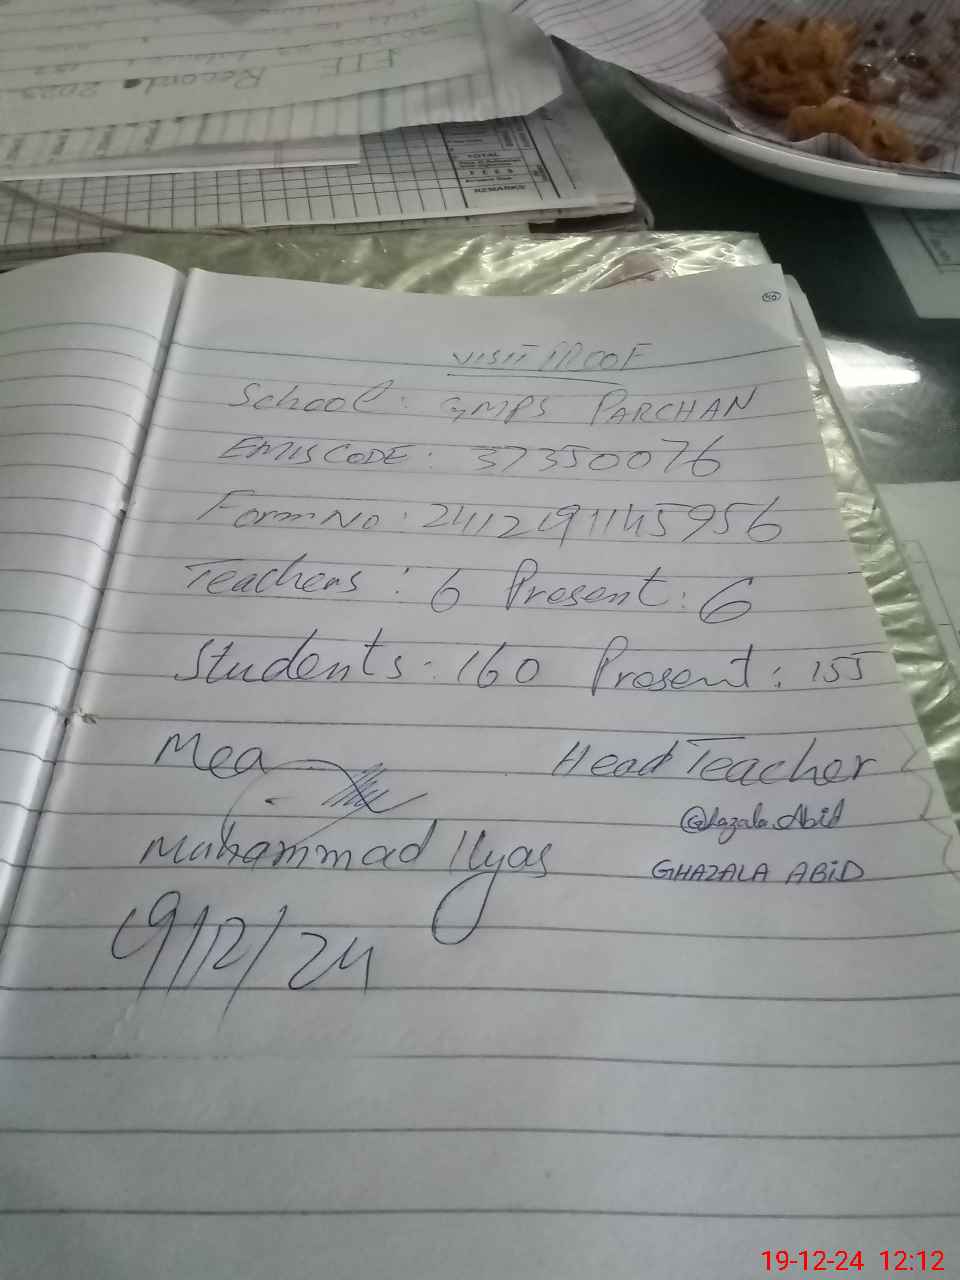 FTF Record 2023
TOTAL
FEES
REMARKS
40
VISIT PROOF
School: GMPS PARCHAN
EMISCODE: 37350076
Form No: 2412191145956
Teachers: 6 Present: 6
Students: 160 Present: 155
Mea Head Teacher
Ghazala Abid
Muhammad Ilyas GHAZALA ABID
19/12/24
19-12-24 12:12